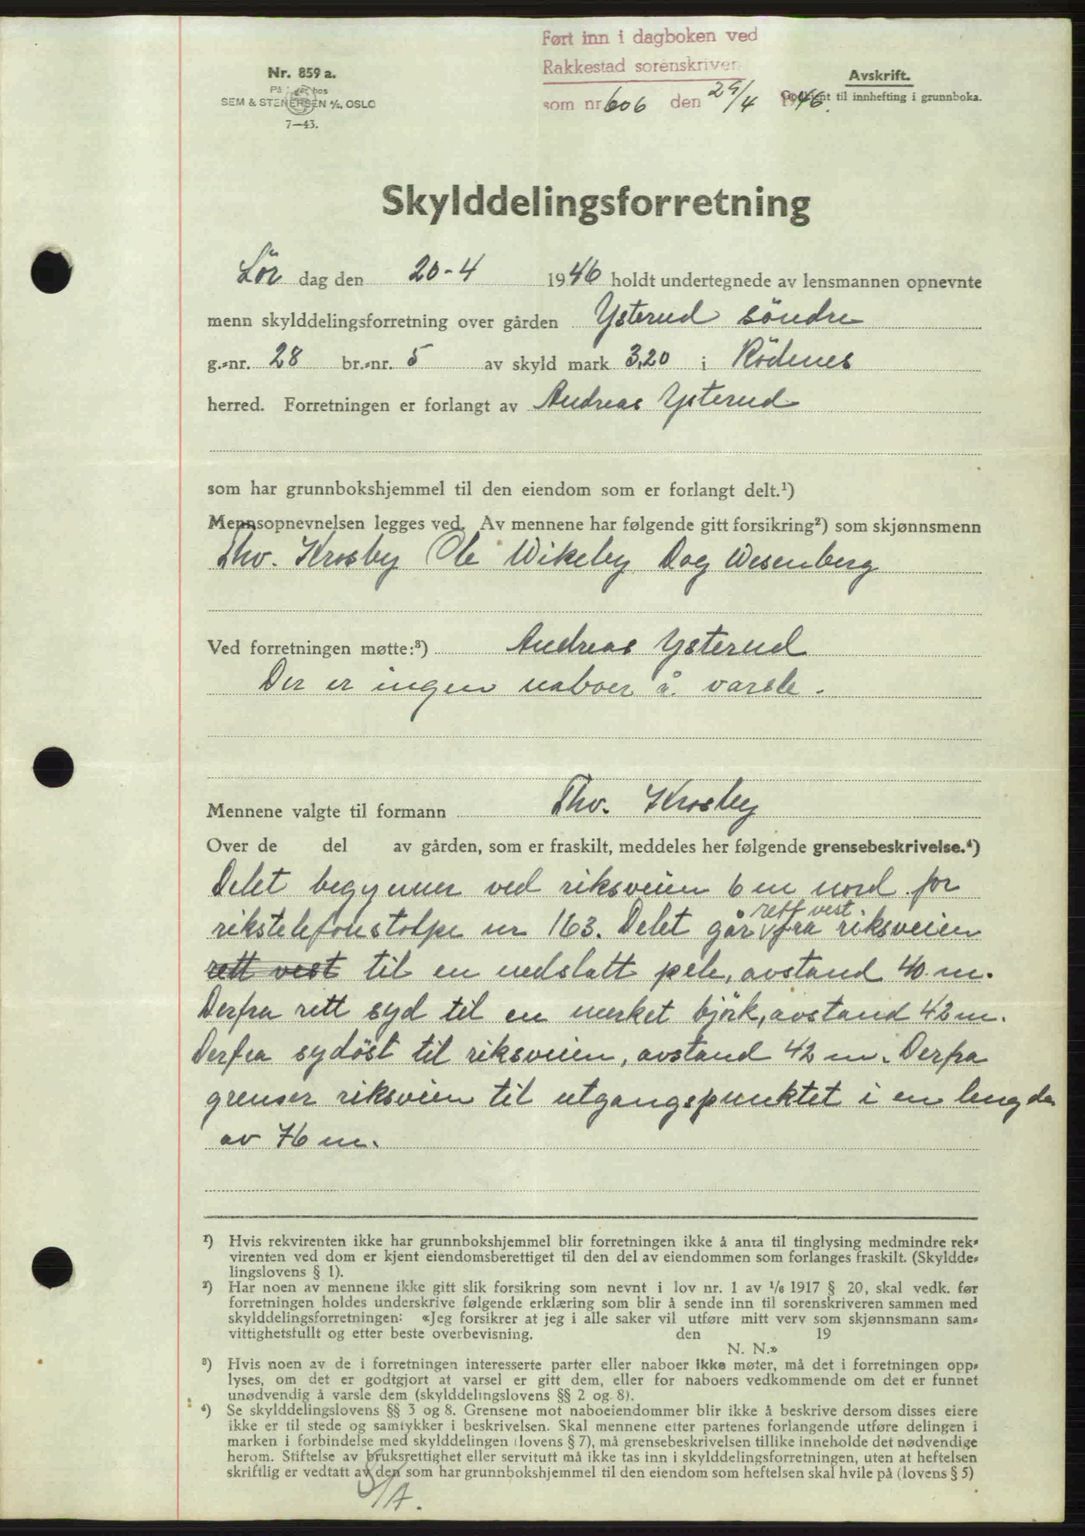 Ført inn i dagboken ved
Rakkestad sorenskriver
som nr 606 den 29/4 1946.
Nr. 859 a.
SEM & STENERSEN A/S, OSLO
7—43.
Avskrift.
Godkjent til innhefting i grunnboka.
Skylddelingsforretning
Lör dag den 20-4 1946 holdt undertegnede av lensmannen opnevnte
menn skylddelingsforretning over gården Ysterud söndre
g.-nr. 28 br.-nr. 5 av skyld mark 3,20 i Rödenes
herred. Forretningen er forlangt av Andreas Ysterud
som har grunnbokshjemmel til den eiendom som er forlangt delt.¹)
Mennsopnevnelsen legges ved. Av mennene har følgende gitt forsikring²) som skjønnsmenn
Thv. Krosby Ole Wikeby Dag Wesenberg
Ved forretningen møtte:³) Andreas Ysterud
Der er ingen naboer å varsle.
Mennene valgte til formann Thv. Krosby
Over de del av gården, som er fraskilt, meddeles her følgende grensebeskrivelse.⁴)
Delet begynner ved riksveien 6 m nord for
rikstelefonstolpe nr 163. Delet går rett vest fra riksveien
rett vest til en nedslått pele, avstand 40 m.
Derfra rett syd til en merket björk, avstand 42 m.
Derfra sydöst til riksveien, avstand 42 m. Derfra
grenser riksveien til utgangspunktet i en lengde
av 76 m.
¹) Hvis rekvirenten ikke har grunnbokshjemmel blir forretningen ikke å anta til tinglysing medmindre rek-
virenten ved dom er kjent eiendomsberettiget til den del av eiendommen som forlanges fraskilt. (Skyldde-
lingslovens § 1).
²) Har noen av mennene ikke gitt slik forsikring som nevnt i lov nr. 1 av 1/6 1917 § 20, skal vedk. før
forretningen holdes underskrive følgende erklæring som blir å sende inn til sorenskriveren sammen med
skylddelingsforretningen: «Jeg forsikrer at jeg i alle saker vil utføre mitt verv som skjønnsmann sam-
vittighetsfullt og etter beste overbevisning. den 19
N. N.»
³) Hvis noen av de i forretningen interesserte parter eller naboer ikke møter, må det i forretningen opp-
lyses, om det er godtgjort at varsel er gitt dem, eller for naboers vedkommende om det er funnet
unødvendig å varsle dem (skylddelingslovens §§ 2 og 8).
⁴) Se skylddelingslovens §§ 3 og 8. Grensene mot naboeiendommer blir ikke å beskrive dersom disses eiere
ikke er til stede og samtykker i beskrivelsen. Skal mennene etter partenes forlangende utføre delingen i
marken i forbindelse med skylddelingen (lovens § 7), må grensebeskrivelsen tillike inneholde det nødvendige
herom. Stiftelse av bruksrettighet eller servitutt må ikke tas inn i skylddelingsforretningen, uten at heftelsen
skriftlig er vedtatt av den som har grunnbokshjemmel til den eiendom som heftelsen skal hvile på (lovens § 5)